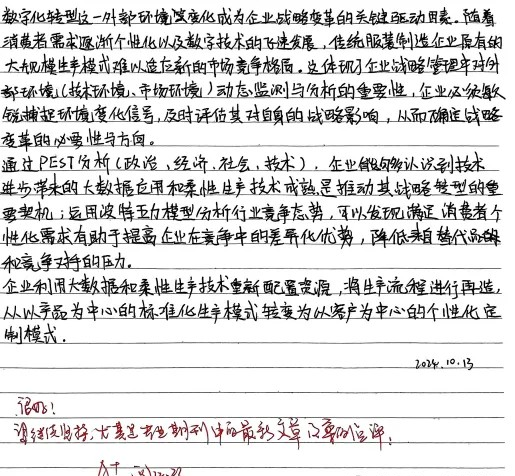 数字化转型这一外部环境变化成为企业战略变革的关键驱动因素。随着
消费者需求逐渐个性化以及数字技术的飞速发展，传统服装制造企业原有的
大规模生产模式难以适应新的市场竞争格局。这体现了企业战略管理中对外
部环境(技术环境、市场环境)动态监测与分析的重要性，企业必须敏
锐捕捉环境变化信号，及时评估其对自身的战略影响，从而确定战略
变革的必要性与方向。
通过PEST分析(政治、经济、社会、技术)，企业能够认识到技术
进步带来的大数据应用和柔性生产技术成熟是推动其战略转型的重
要契机；运用波特五力模型分析行业竞争态势，可以发现满足消费者个
性化需求有助于提高企业在竞争中的差异化优势，降低来自替代品的
和竞争对手的压力。
企业利用大数据和柔性生产技术重新配置资源，将生产流程进行再造，
从以产品为中心的标准化生产模式转变为以客户为中心的个性化定
制模式。
2024.10.13
很好！
请继续坚持，尤其是期刊中的最新文章
A+